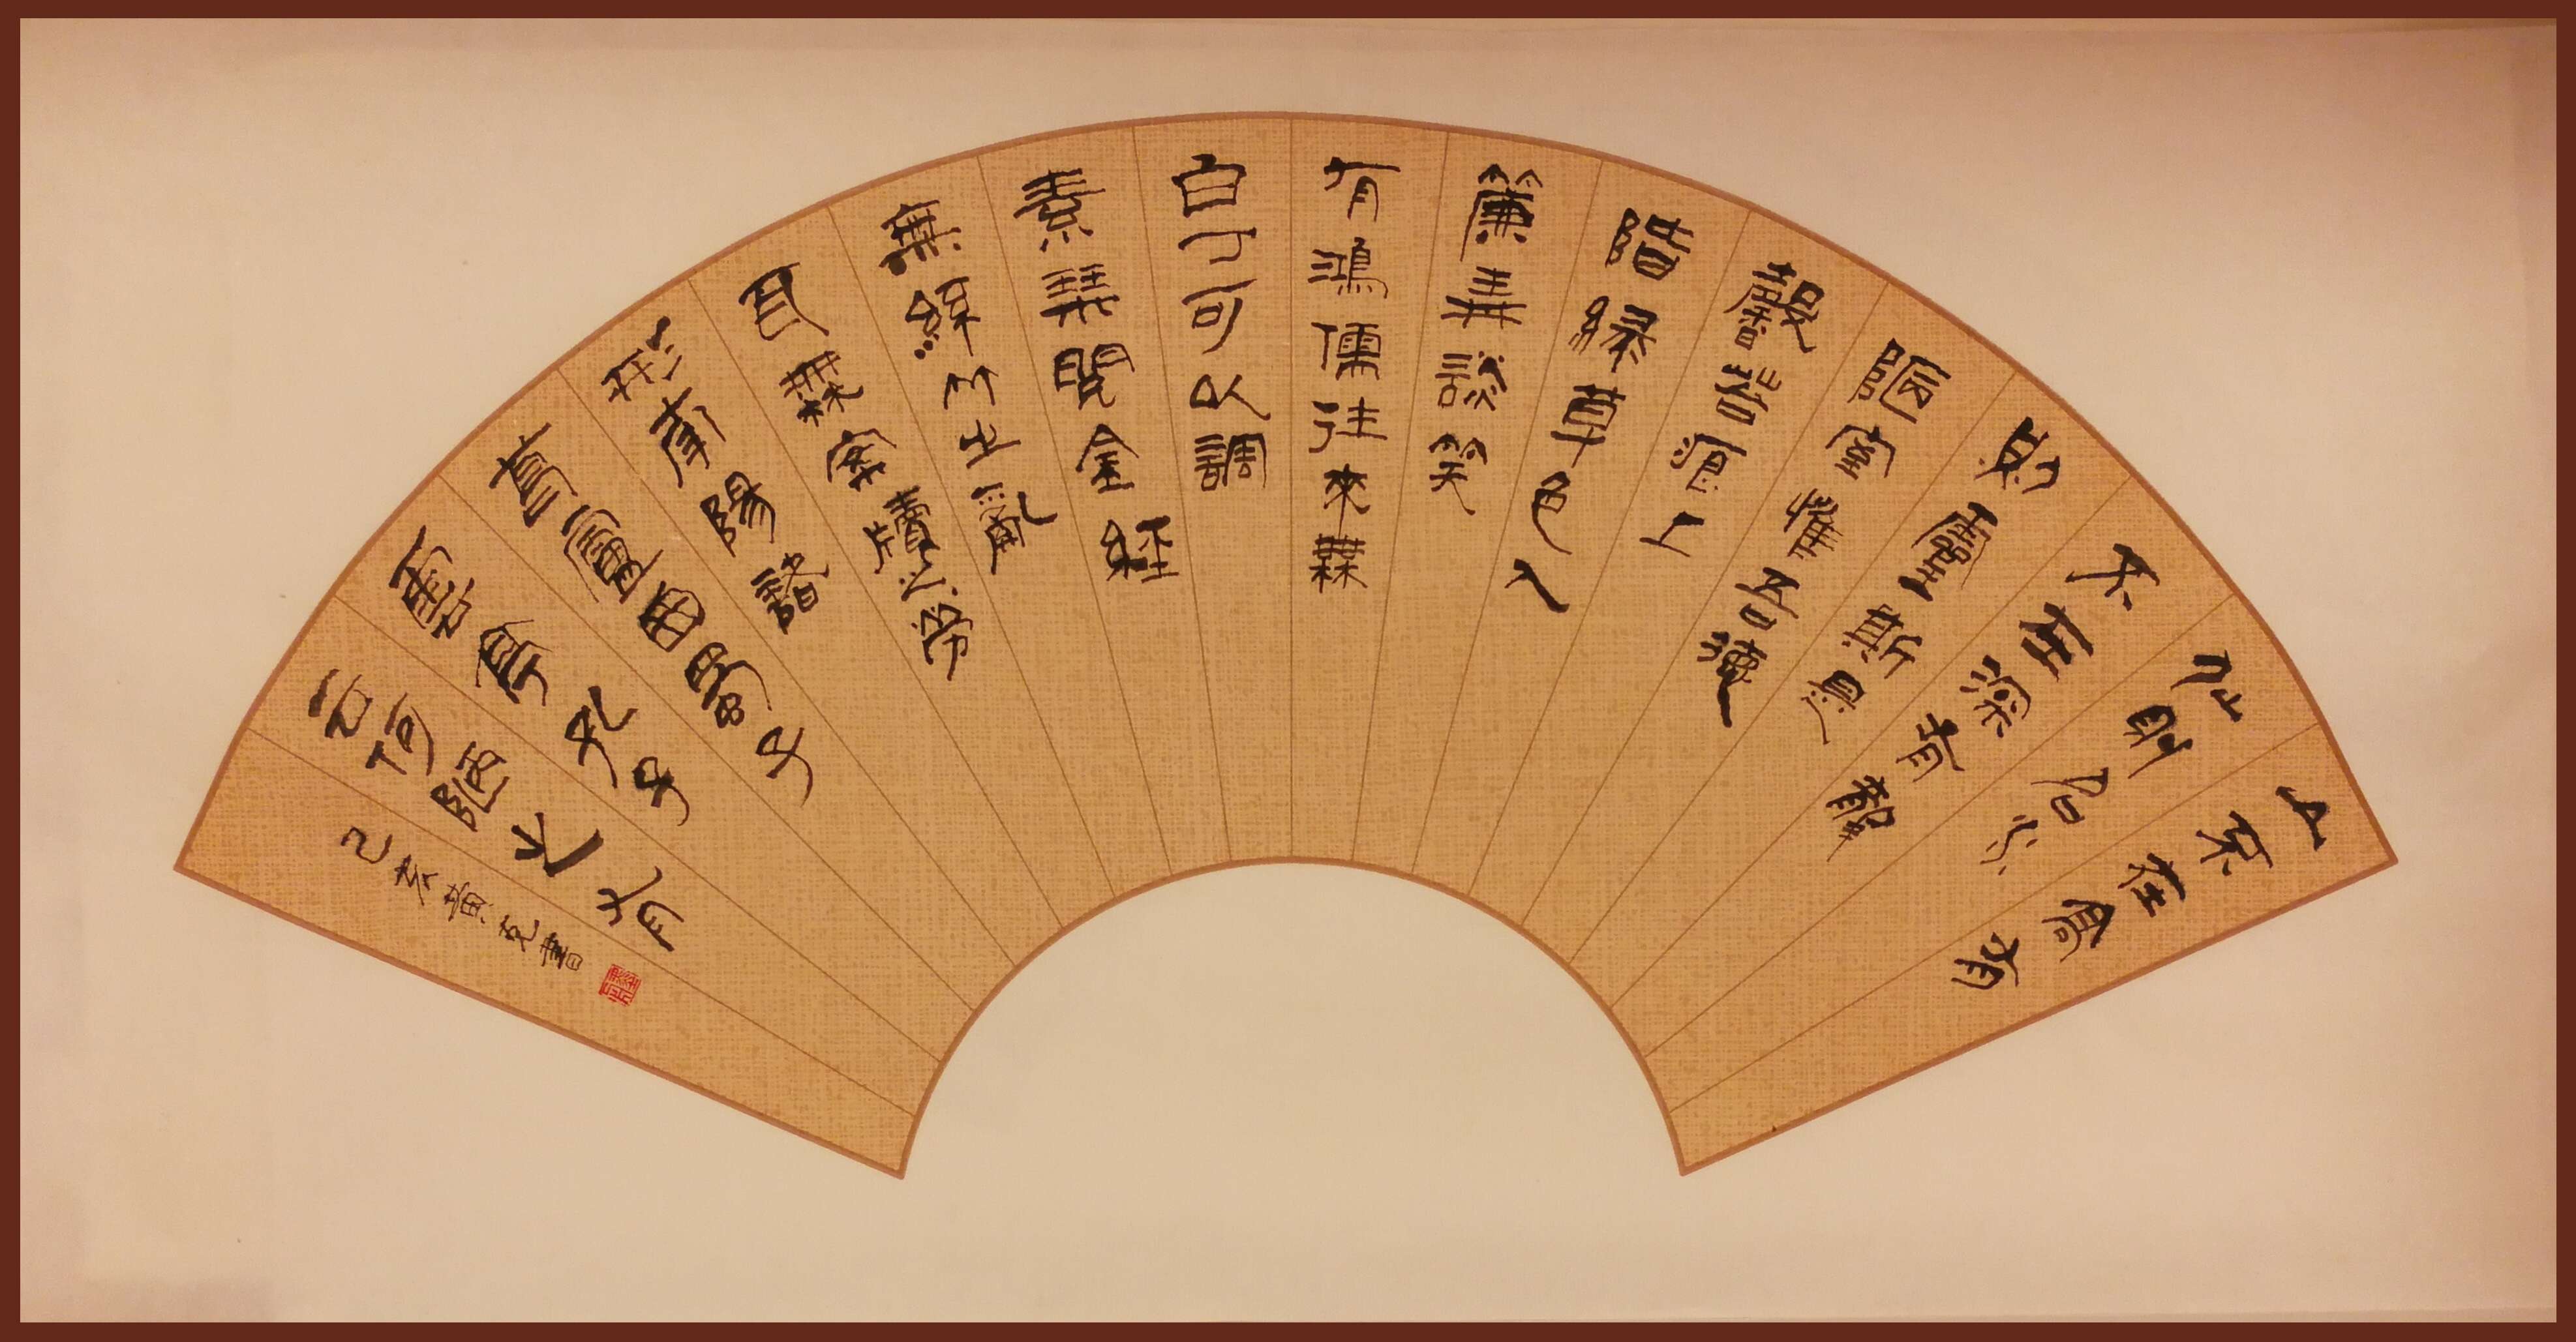 山不在高有
仙則名水
不在深有龍
則靈斯是
陋室惟吾德
馨苔痕上
階綠草色入
簾青談笑
有鴻儒往來無
白丁可以調
素琴閱金經
無絲竹之亂
耳無案牘之勞
形南陽諸
葛廬西蜀子
雲亭孔子
云何陋之有
己亥克書